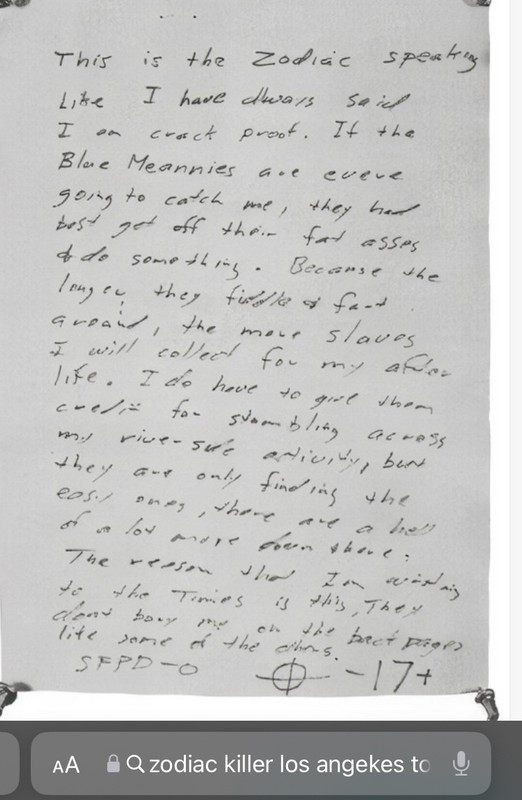 This is the Zodiac speaking
Like I have always said
I am crack proof. If the
Blue Meannies are evere
going to catch me, they had
best get off their fat asses
& do something. Because the
longer they fiddle & fart
around, the more slaves
I will collect for my after
life. I do have to give them
credit for stumbling across
my river-side activity, but
they are only finding the
easy ones, there are a hell
of a lot more down there.
The reason that Im writing
to the Times is this, They
dont bury me on the back pages
like some of the others.
SFPD-0 -17+
AA zodiac killer los angekes to